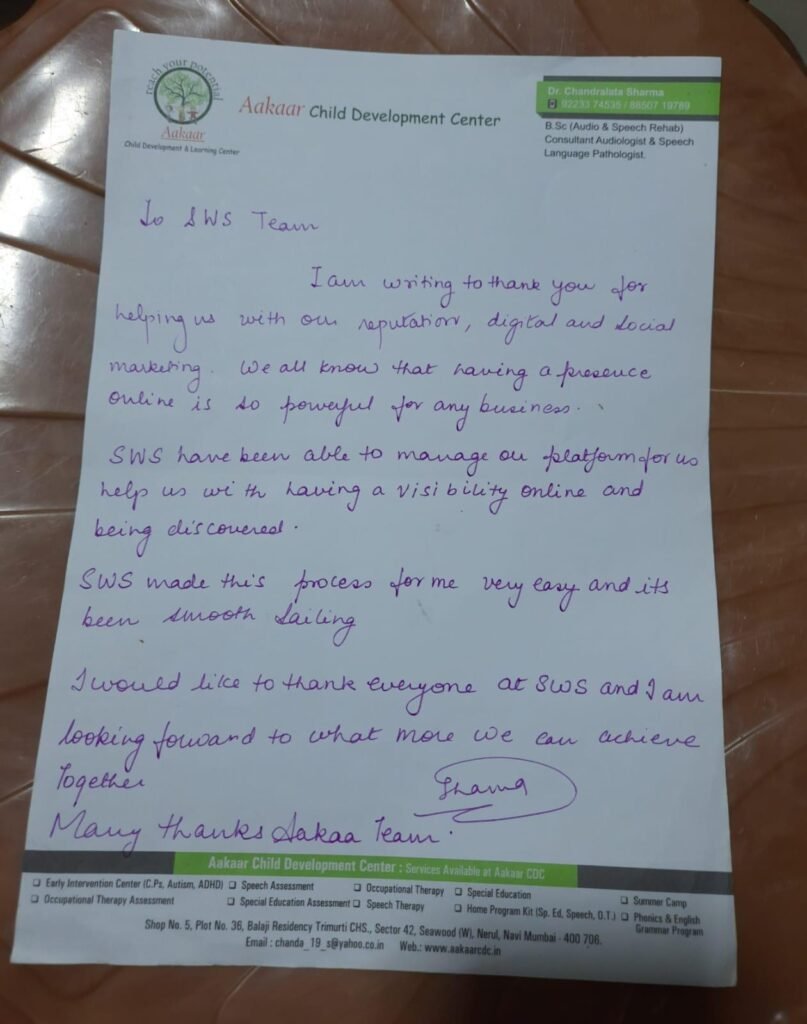 reach your potential
Aakaar
Child Development & Learning Center
Aakaar Child Development Center
Dr. Chandralata Sharma
92233 74535 / 88507 19789
B.Sc (Audio & Speech Rehab)
Consultant Audiologist & Speech
Language Pathologist.
To SWS Team
I am writing to thank you for
helping us with our reputation, digital and social
marketing. We all know that having a presence
online is so powerful for any business.
SWS have been able to manage ou platform for us
help us with having a visibility online and
being discovered.
SWS made this process for me very easy and its
been smooth sailing
I would like to thank everyone at SWS and I am
looking forward to what more we can achieve
Together
Sharma
Many thanks Aakaa Team.
Aakaar Child Development Center : Services Available at Aakaar CDC
Early Intervention Center (C.Ps, Autism, ADHD) Speech Assessment Occupational Therapy Special Education Summer Camp
Occupational Therapy Assessment Special Education Assessment Speech Therapy Home Program Kit (Sp. Ed, Speech, O.T.) Phonics & English
Grammar Program
Shop No. 5, Plot No. 36, Balaji Residency Trimurti CHS., Sector 42, Seawood (W), Nerul, Navi Mumbai - 400 706.
Email : chanda_19_s@yahoo.co.in Web.: www.aakaarcdc.in